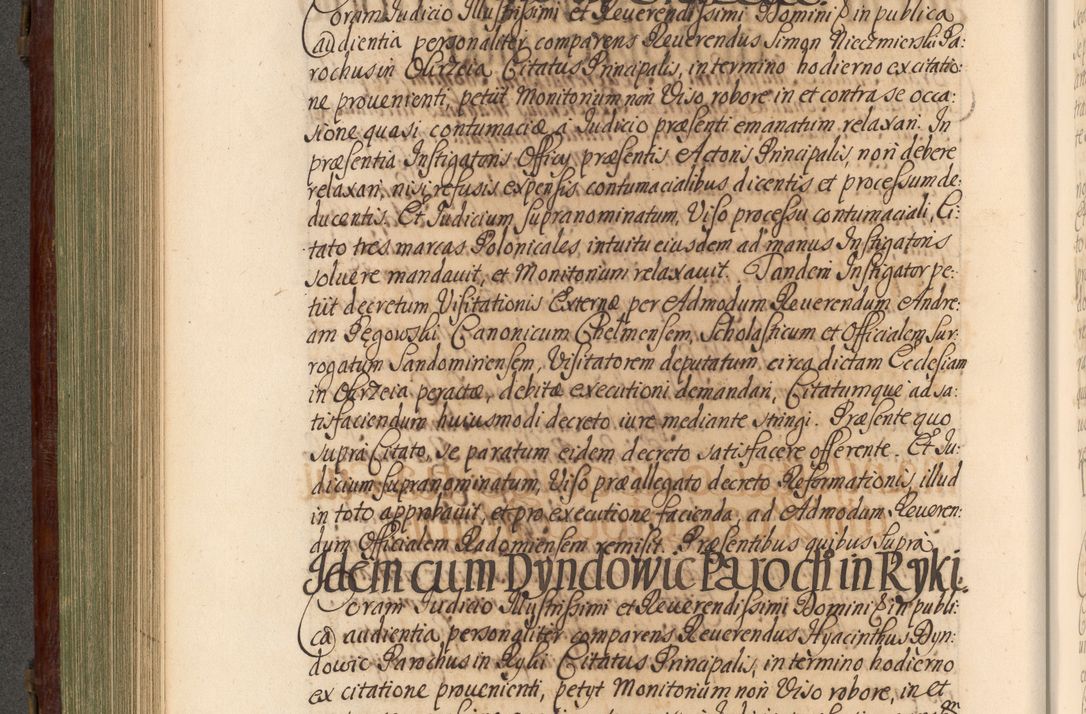 Coram Judicio Illustrissimi et Reverendissimi Domini in publica
audientia personaliter comparens Reverendus Simon Nieczmierski Pa:
rochus in Okrzeia Citatus Principalis, in termino hodierno ex citatio:
ne prouenienti, petiit Monitorium non Viso robore in et contra se occa:
sione quasi contumaciæ à Judicio præsenti emanatum relaxari. In
præsentia Instigatoris Officij præsentis Actoris Principalis, non debere
relaxari, nisi refusis expensis contumacialibus dicentis et processum de:
ducentis. Et Judicium supranominatum, Viso processu contumaciali, Ci:
tato tres marcas Polonicales intuitu eiusdem ad manus Instigatoris
soluere mandauit, et Monitorium relaxauit. Tandem Instigator pe:
tiit decretum Visitationis Externæ per Admodum Reuerendum Andre:
am Pęgowski Canonicum Chelmensem, Scholasticum et Officialem Sur:
rogatum Sandomiriensem, Visitatorem deputatum circa dictam Ecclesiam
in Okrzeia peractæ, debitæ executioni demandari, Citatumque ad sa:
tisfaciendum huiusmodi decreto iure mediante stringi. Præsente quo
supra Citato, se paratum eidem decreto satisfacere offerente. Et Ju:
dicium supranominatum, Viso præallegato decreto Reformationis, illud
in toto approbauit, et pro executione facienda ad Admodum Reueren:
dum Officialem Radomiensem remisit. Præsentibus quibus supra
Idem cum Dyndowic Paroch in Ryki.
Coram Judicio Illustrissimi et Reuerendissimi Domini in publi:
ca audientia personaliter comparens Reuerendus Hyacinthus Dyn:
dowic Parochus in Ryki Citatus Principalis, in termino hodierno
ex citatione prouenienti, petyt Monitorium non Viso robore, in et